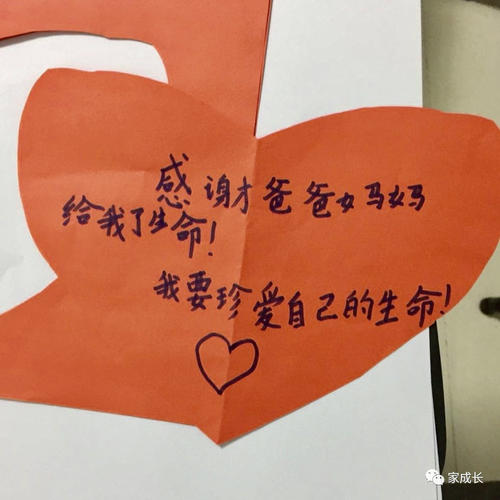 感谢爸爸妈妈
给我了生命!
我要珍爱自己的生命!
家成长